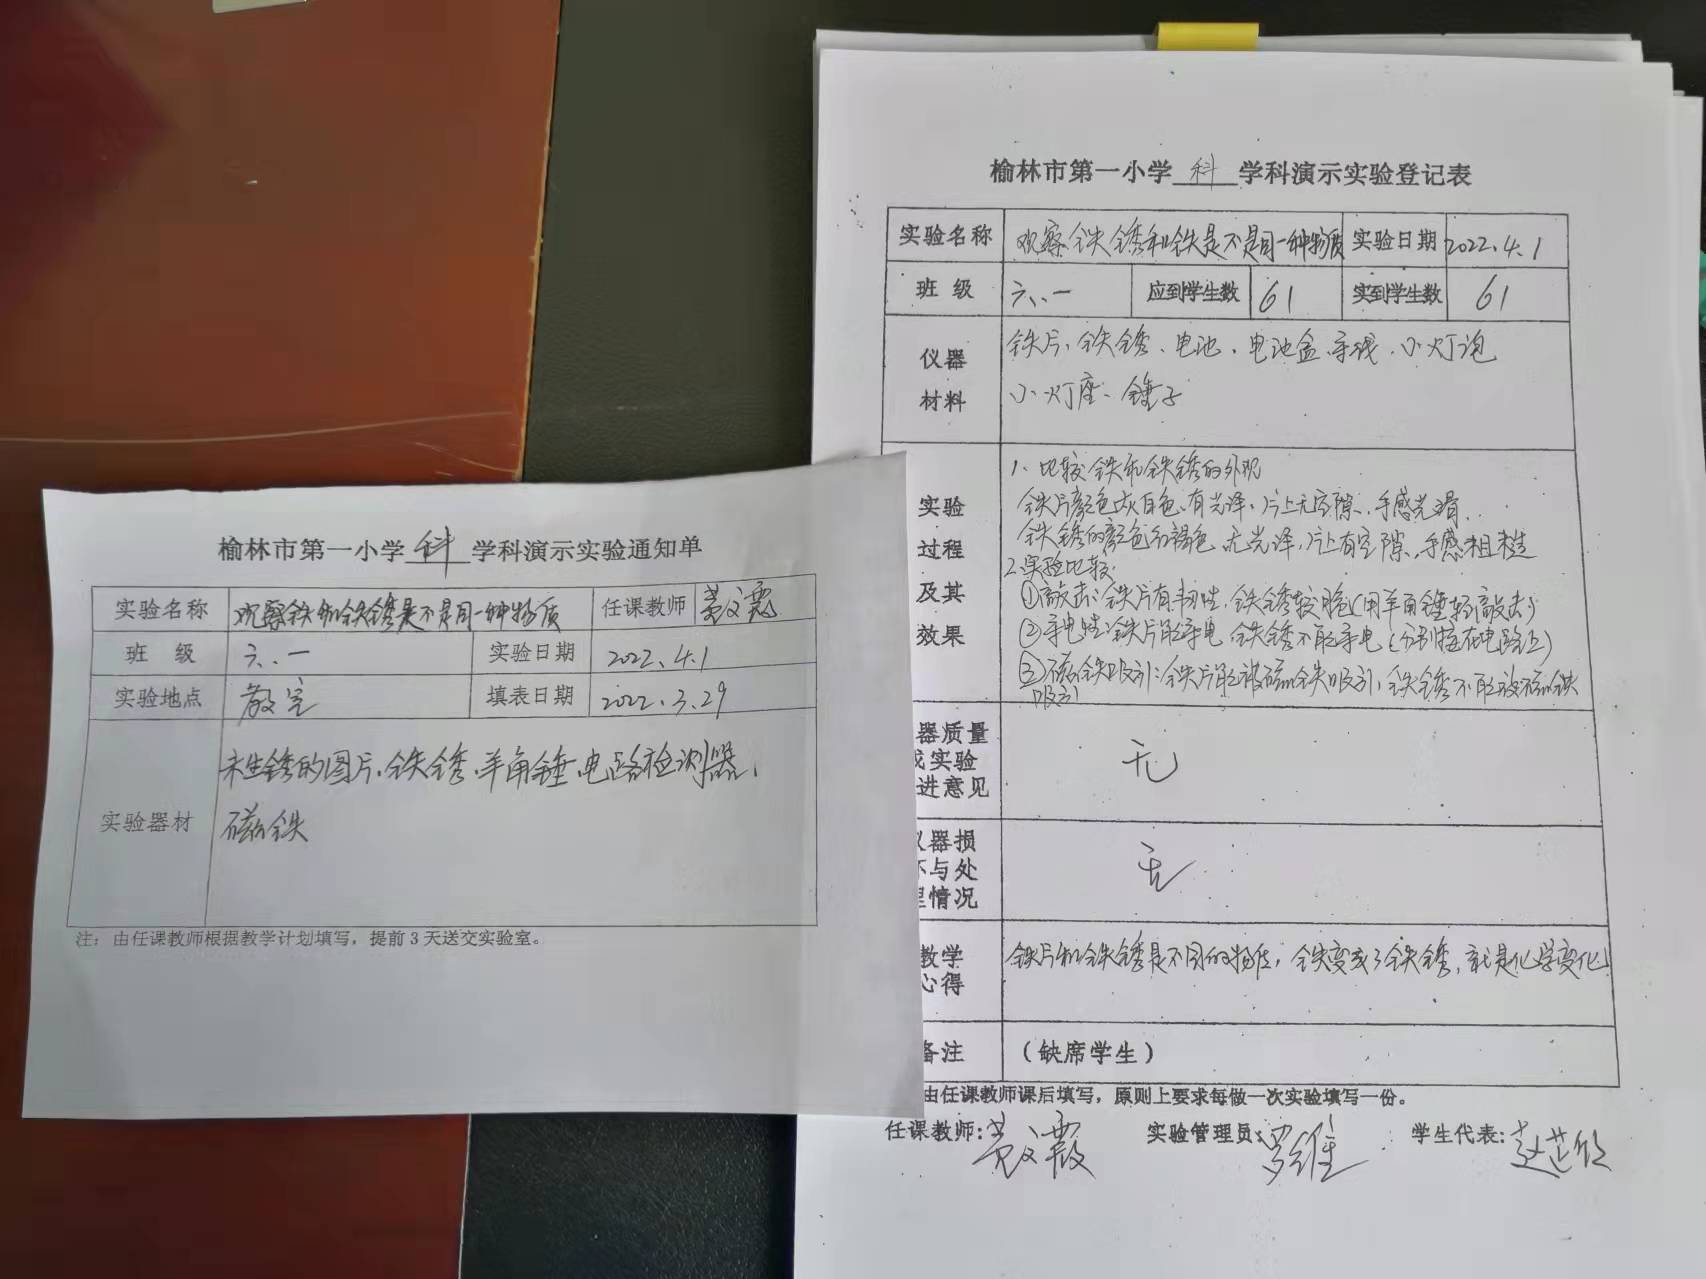 榆林市第一小学 科 学科演示实验通知单
实验名称 观察铁和铁锈是不是同一种物质 任课教师
班 级 六、一 实验日期 2022.4.1
实验地点 教室 填表日期 2022.3.29
实验器材
未生锈的图片、铁锈、羊角锤、电路检测器、
磁铁
注：由任课教师根据教学计划填写，提前3天送交实验室。
榆林市第一小学 科 学科演示实验登记表
实验名称 观察铁锈和铁是不是同一种物质 实验日期 2022.4.1
班 级 六、一 应到学生数 61 实到学生数 61
仪器
材料
铁片、铁锈、电池、电池盒、导线、小灯泡
小灯座、锤子
实验
过程
及其
效果
1、比较铁和铁锈的外观
铁片颜色灰白色、有光泽、片上无空隙、手感光滑、
铁锈的颜色红褐色、无光泽、片上有空隙、手感粗糙
2.实验比较
①敲击：铁片有韧性，铁锈较脆（用羊角锤轻敲击）
②导电性：铁片能导电 铁锈不能导电（分别接在电路上）
③磁铁吸引：铁片能被磁铁吸引，铁锈不能被磁铁
吸引
器质量
实验
进意见
无
器损
与处
情况
无
教学
心得
铁片和铁锈是不同的物质，铁变成了铁锈，就是化学变化
备注 （缺席学生）
由任课教师课后填写，原则上要求每做一次实验填写一份。
任课教师: 实验管理员: 罗维 学生代表: